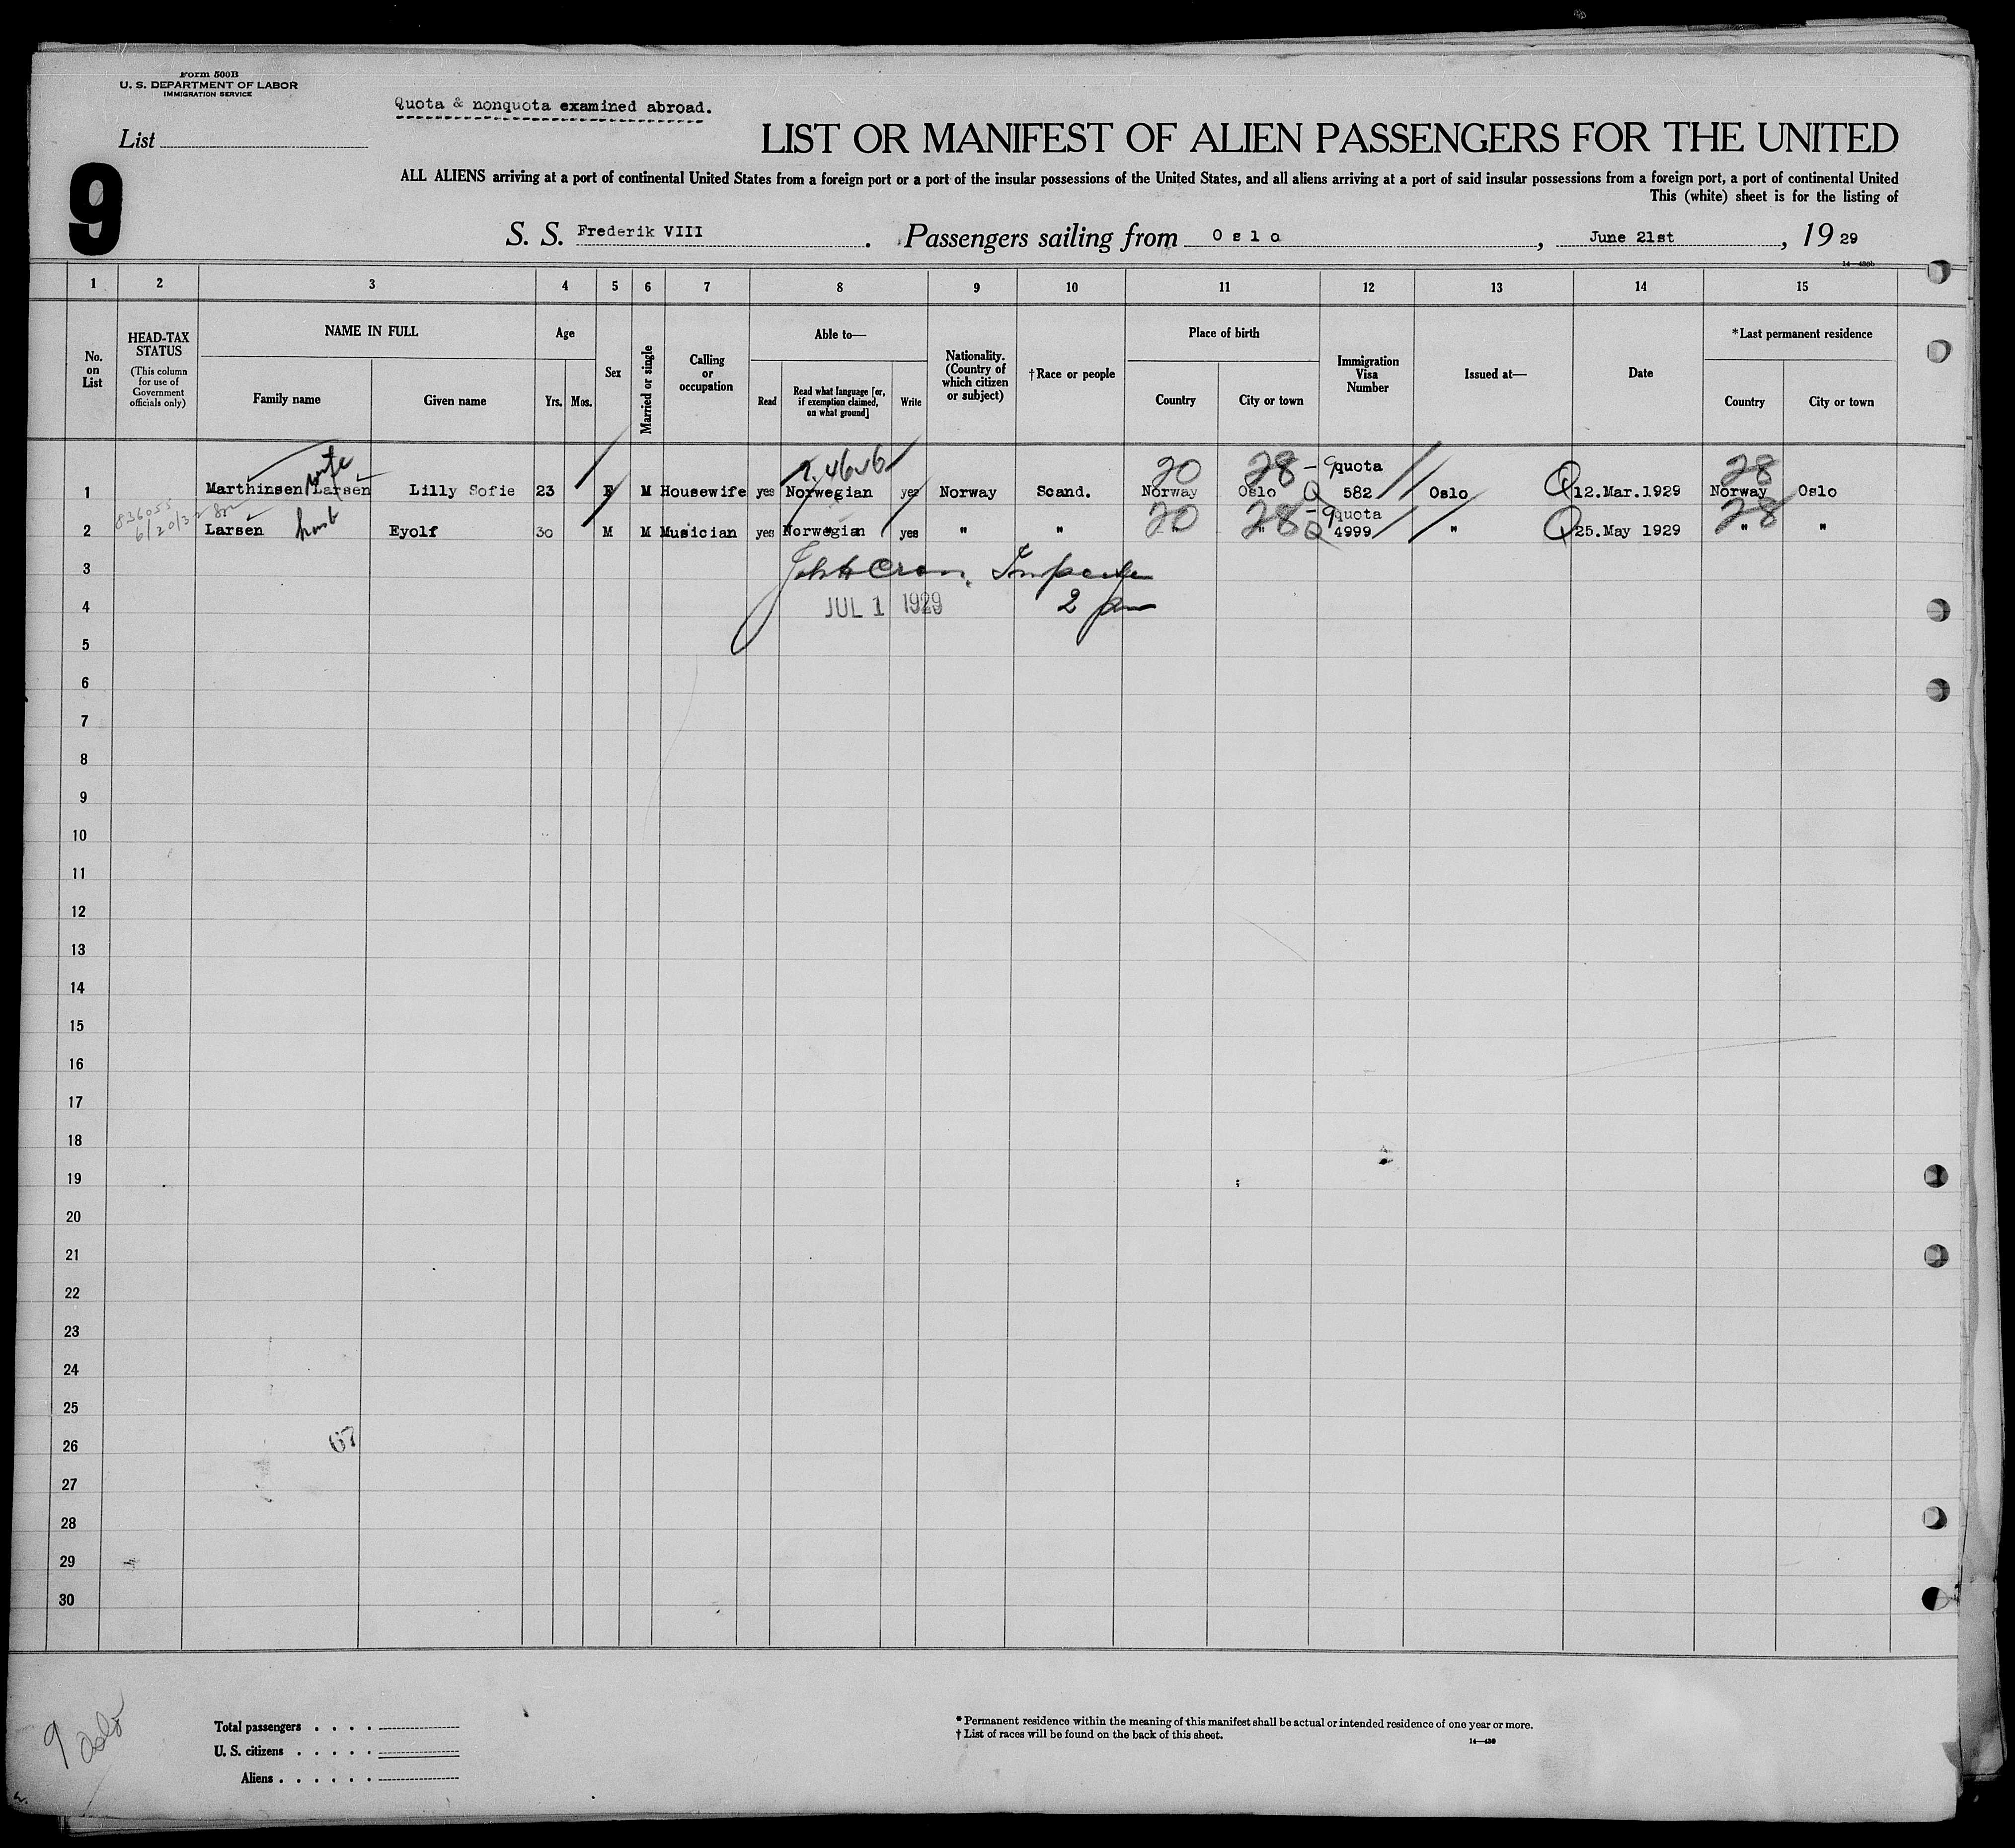 Form 500B
U. S. DEPARTMENT OF LABOR
IMMIGRATION SERVICE
Quota & nonquota examined abroad.
List
9
LIST OR MANIFEST OF ALIEN PASSENGERS FOR THE UNITED
ALL ALIENS arriving at a port of continental United States from a foreign port or a port of the insular possessions of the United States, and all aliens arriving at a port of said insular possessions from a foreign port, a port of continental United
This (white) sheet is for the listing of
S. S. Frederik VIII . Passengers sailing from Oslo , June 21st , 19 29
14—430b
1 2 3 4 5 6 7 8 9 10 11 12 13 14 15
No. on List
HEAD-TAX STATUS
(This column for use of Government officials only)
NAME IN FULL
Family name Given name
Age
Yrs. Mos.
Sex
Married or single
Calling or occupation
Able to—
Read
Read what language [or, if exemption claimed, on what ground]
Write
Nationality. (Country of which citizen or subject)
†Race or people
Place of birth
Country City or town
Immigration Visa Number
Issued at—
Date
*Last permanent residence
Country City or town
wife 20 28 - 9 quota 28
1 Marthinsen/Larsen Lilly Sofie 23 F M Housewife yes Norwegian yes Norway Scand. Norway Oslo Q 582 Oslo Q 12.Mar.1929 Norway Oslo
836055
6/20/32
20 28 - 9 quota 28
2 Larsen husb Eyolf 30 M M Musician yes Norwegian yes " " " " Q 4999 " Q 25.May 1929 " "
3
4 JUL 1 1929 2 pm
5
6
7
8
9
10
11
12
13
14
15
16
17
18
19
20
21
22
23
24
25
26 67
27
28
29
30
9 Oslo
Total passengers . . . .
U. S. citizens . . . . .
Aliens . . . . . .
* Permanent residence within the meaning of this manifest shall be actual or intended residence of one year or more.
† List of races will be found on the back of this sheet.
14—430